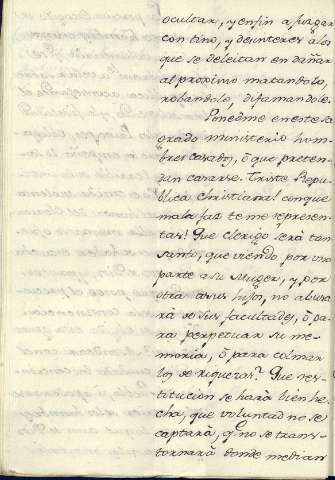 ocultar, y enfin a juzgar
con tino, y desinteres a los
que se deleitan en dañar
al proximo matandolo,
robandolo, difamandole.
Ponedme en este sa
grado ministerio hom
bres casados, ò que preten-
dan casarse. Triste Repu
blica christiana! con que
mala faz te me represen
tas! Que clerigo serà tan
santo, que viendo por una
parte a su Muger, y por
otra a sus hijos, no abusa
rà de sus facultades, ò pa
ra perpetuar su me-
moria, ò para colmar
los de riquezas? Que res-
titucion se harà bien he
cha, que voluntad no se
captarà, q.e no se trans-
tornarà donde median